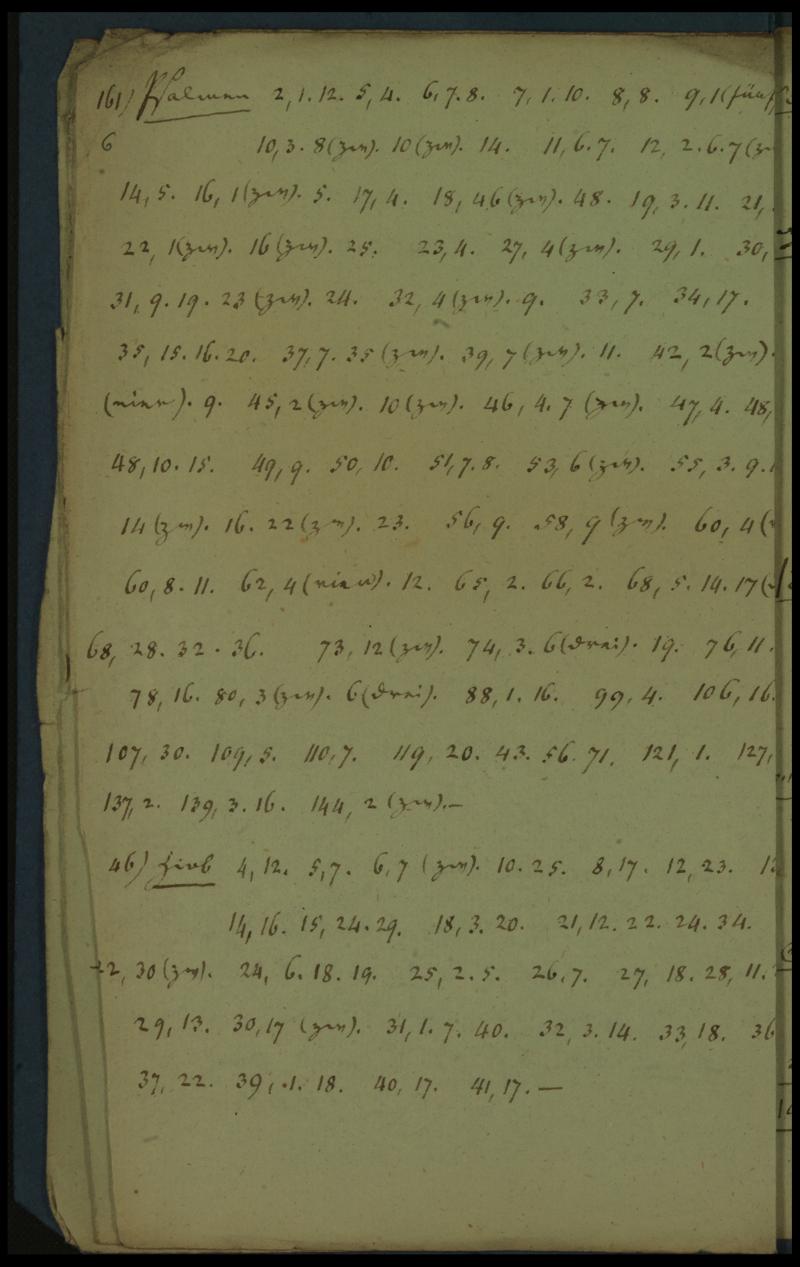 161) Psalmen 2,1.12. 5,4. 6,7.8. 7,1.10. 8,8. 9,1(fünf
6 10,3. 8(zwei). 10(zwei). 14. 11,6.7. 12, 2.6.7(
14,5. 16, 1(zwei). 5. 17,4. 18, 46(zwei). 48. 19,3.11. 21,
22, 1(zwei). 16(zwei). 25. 23,4. 27, 4(zwei). 29,1. 30,
31, 9.19. 23(zwei). 24. 32, 4(zwei). 9. 33,7. 34,17.
35, 15.16.20. 37,7. 35(zwei). 39, 7(zwei). 11. 42, 2(zwei).
(vier). 9. 45, 2(zwei). 10(zwei). 46, 4.7 (zwei). 47,4. 48,
48,10.15. 49,9. 50,10. 51,7.8. 53, 6(zwei). 55, 3.9.
14(zwei). 16. 22(zwei). 23. 56, 9. 58, 9(zwei). 60, 4(
60, 8.11. 62, 4(vier). 12. 65, 2. 66, 2. 68, 5.14.17(
68, 28.32.36. 73, 12(zwei). 74, 3. 6(drei). 19. 76, 11.
78, 16. 80, 3(zwei). 6(drei). 88, 1.16. 99, 4. 106, 16.
107, 30. 109, 5. 110,7. 119, 20.43.56.71. 121, 1. 127,
137,2. 139, 3.16. 144, 2 (zwei).—
46) Hiob 4, 12. 5,7. 6,7 (zwei). 10.25. 8,17. 12, 23.
14,16. 15, 24.29. 18,3.20. 21,12.22.24.34.
22, 30(zwei). 24, 6.18.19. 25, 2.5. 26,7. 27, 18. 28, 11.
29, 13. 30,17 (zwei). 31, 1.7.40. 32, 3.14. 33,18. 36
37, 22. 39, 1.18. 40, 17. 41, 17.—